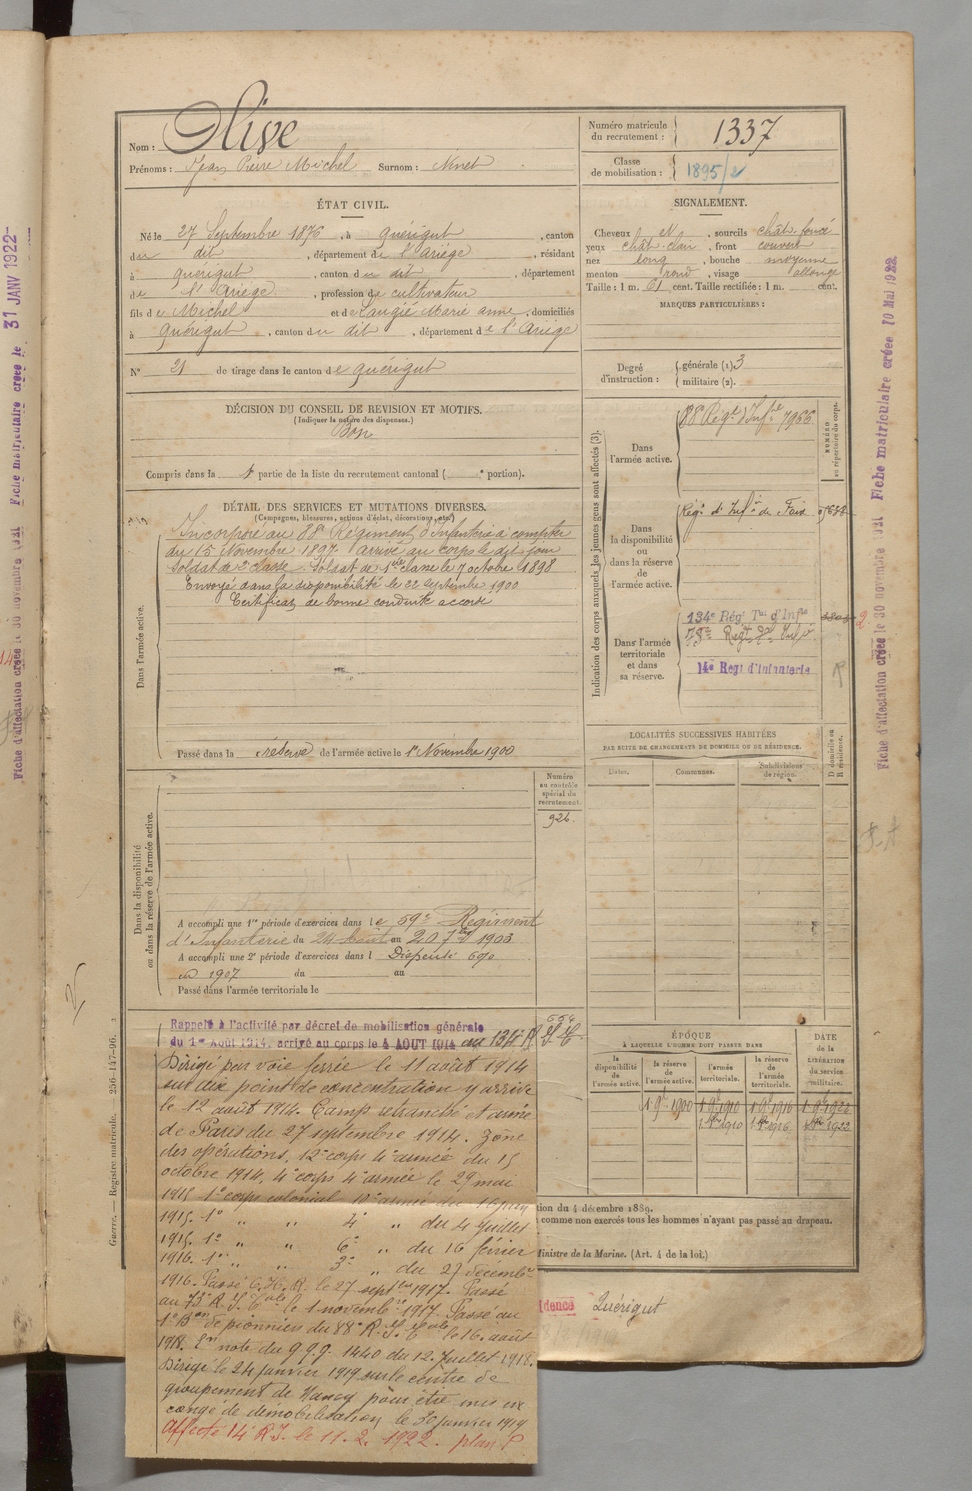 Nom : Olive
Prénoms : Jean Pierre Michel Surnom : Ninet
Numéro matricule du recrutement : 1337
Classe de mobilisation : 1895/2
ÉTAT CIVIL.
Né le 27 Septembre 1876, à Quérigut, canton
du dit, département de l'Ariège, résidant
à Quérigut, canton du dit, département
de l'Ariège, profession de cultivateur
fils de Michel et de Laugié Marie anne, domiciliés
à Quérigut, canton du dit, département de l'Ariège
N° 21 de tirage dans le canton de Quérigut
SIGNALEMENT.
Cheveux N, sourcils chât. foncé
yeux chât. clair, front couvert
nez long, bouche moyenne
menton rond, visage allongé
Taille : 1 m. 61 cent. Taille rectifiée : 1 m. cent.
MARQUES PARTICULIÈRES :
Degré d'instruction : générale (1) 3
militaire (2).
DÉCISION DU CONSEIL DE REVISION ET MOTIFS.
(Indiquer la nature des dispenses.)
Bon
Compris dans la 1e partie de la liste du recrutement cantonal ( e portion).
DÉTAIL DES SERVICES ET MUTATIONS DIVERSES.
(Campagnes, blessures, actions d'éclat, décorations, etc.)
Dans l'armée active.
Incorporé au 88e Régiment d'Infanterie à compter
du 15 Novembre 1897 arrivé au corps le dit jour
Soldat de 2e classe. Soldat de 1ère classe le 7 octobre 1898
Envoyé dans la disponibilité le 22 septembre 1900
Certificat de bonne conduite accordé
Passé dans la réserve de l'armée active le 1er Novembre 1900
Indication des corps auxquels les jeunes gens sont affectés (3).
NUMÉRO au répertoire du corps.
Dans l'armée active.
88e Régt d'Infrie 7966
Dans la disponibilité ou dans la réserve de l'armée active.
Régt d'Infie de Foix
Dans l'armée territoriale et dans sa réserve.
134e Régt Tal d'Infie
14e Regt d'Infanterie
LOCALITÉS SUCCESSIVES HABITÉES
PAR SUITE DE CHANGEMENTS DE DOMICILE OU DE RÉSIDENCE.
Dates. Communes. Subdivisions de région. D domicile ou R résidence.
Dans la disponibilité ou dans la réserve de l'armée active.
Numéro au contrôle spécial du recrutement.
926
A accompli une 1re période d'exercices dans le 59e Régiment
d'Infanterie du 24 Août au 20 7bre 1903
A accompli une 2e période d'exercices dans l Dispensé
en 1907 du au
Passé dans l'armée territoriale le
ÉPOQUE
À LAQUELLE L'HOMME DOIT PASSER DANS
la disponibilité de l'armée active.
la réserve de l'armée active.
l'armée territoriale.
la réserve de l'armée territoriale.
DATE de la LIBÉRATION du service militaire.
1 9bre 1900 1 9bre 1910 1 9bre 1916 1 9bre 1922
Rappelé à l'activité par décret de mobilisation générale
du 1er Août 1914, arrivé au corps le 4 AOUT 1914 au 134 R
Dirigé par voie ferrée le 11 août 1914
sur dix point de concentration y arrive
le 12 août 1914. Camp retranché et armée
de Paris du 27 septembre 1914. Zône
des opérations, 12e corps 4e armée du 15
octobre 1914, 4e corps 4e armée le 29 mai
1915 1e corps colonial 10e armée du 16 juin
1915. 1e " " 2e " du 4 Juillet
1915. 1e " " 6e " du 16 février
1916. 1er " " 3e " du 27 décembre
1916. Passé C.H.R. le 27 septbre 1917. Passé
au 73e R.I.Tale le 1 novembre 1917. Passé au
1e Bon de pionniers du 88e R.I.Tale le 16 août
1918. En note du G.Q.G. 1440 du 12 Juillet 1918.
Dirigé le 24 janvier 1919 sur le centre de
groupement de Nancy pour être mis en
congé de démobilisation le 30 janvier 1919
Affecté 14e R.I. le 11.2.1922. plan P.
tion du 4 décembre 1889.
comme non exercés tous les hommes n'ayant pas passé au drapeau.
Ministre de la Marine. (Art. 4 de la loi.)
idence Quérigut
Guerre. — Registre matricule. — 256-147-96.
Fiche d'affectation créée le 30 novembre 1921 Fiche matriculaire créée le 31 JANV 1922
Fiche d'affectation créée le 30 novembre 1921 Fiche matriculaire créée 10 Mai 1922